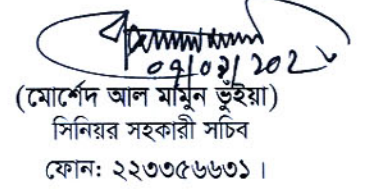 ০৭/০২/২০২
(মোর্শেদ আল মামুন ভুঁইয়া)
সিনিয়র সহকারী সচিব
ফোন: ২২৩৩৫৬৬৩১।